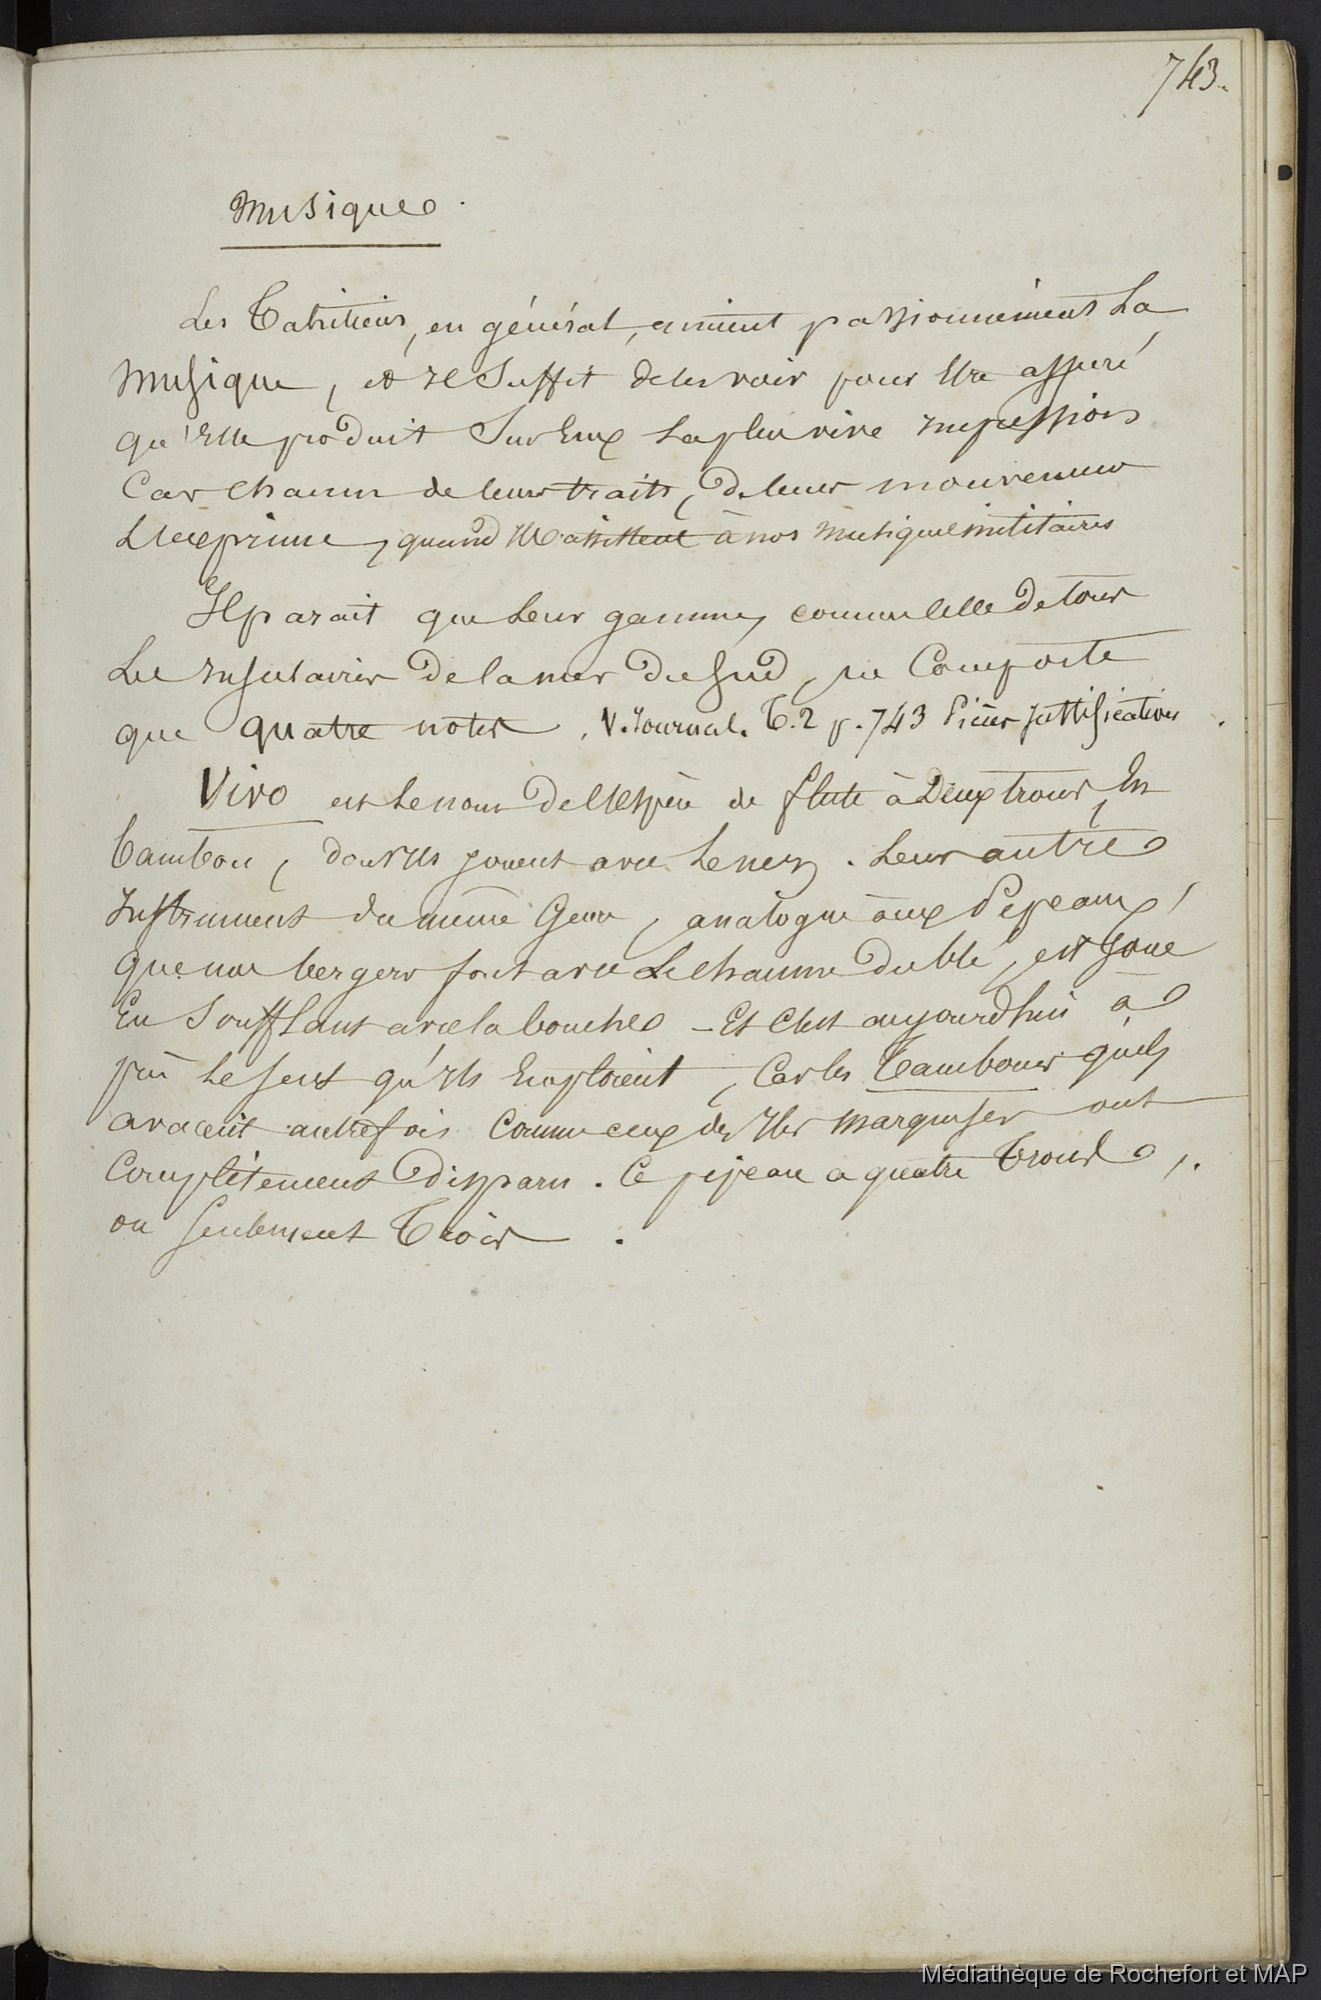 743.
Musique.
Les Tahitiens, en général, aiment passionnément La
musique, et Il Suffit de les voir pour être assuré
qu'Elle produit Sur Eux la plus vive impression
Car chacun de leurs traits, de leurs mouvemens
L'exprime, quand Ils assistent à nos musiques militaires
Il parait que leur gamme, comme celle de tous
Les Insulaires de la mer du Sud, ne Comporte
que quatre notes. V. Journal. T. 2 p. 743 Pièces justificatives.
Vivo est le nom de l'espèce de flute à Deux trous, En
bambou, dont Ils jouent avec le nez. Leur autre
Instrument du même Genre, analogue aux Pipeaux,
que nos bergers font avec le chaume du blé, est Joué
En Soufflant avec la bouche - Et c'est aujourd'hui à
peu près le seul qu'Ils Emploient, Car les Tambours qu'ils
avaient autrefois comme ceux des Iles marquises ont
complètement disparu. Ce pipeau a quatre trous,
ou seulement trois.
Médiathèque de Rochefort et MAP